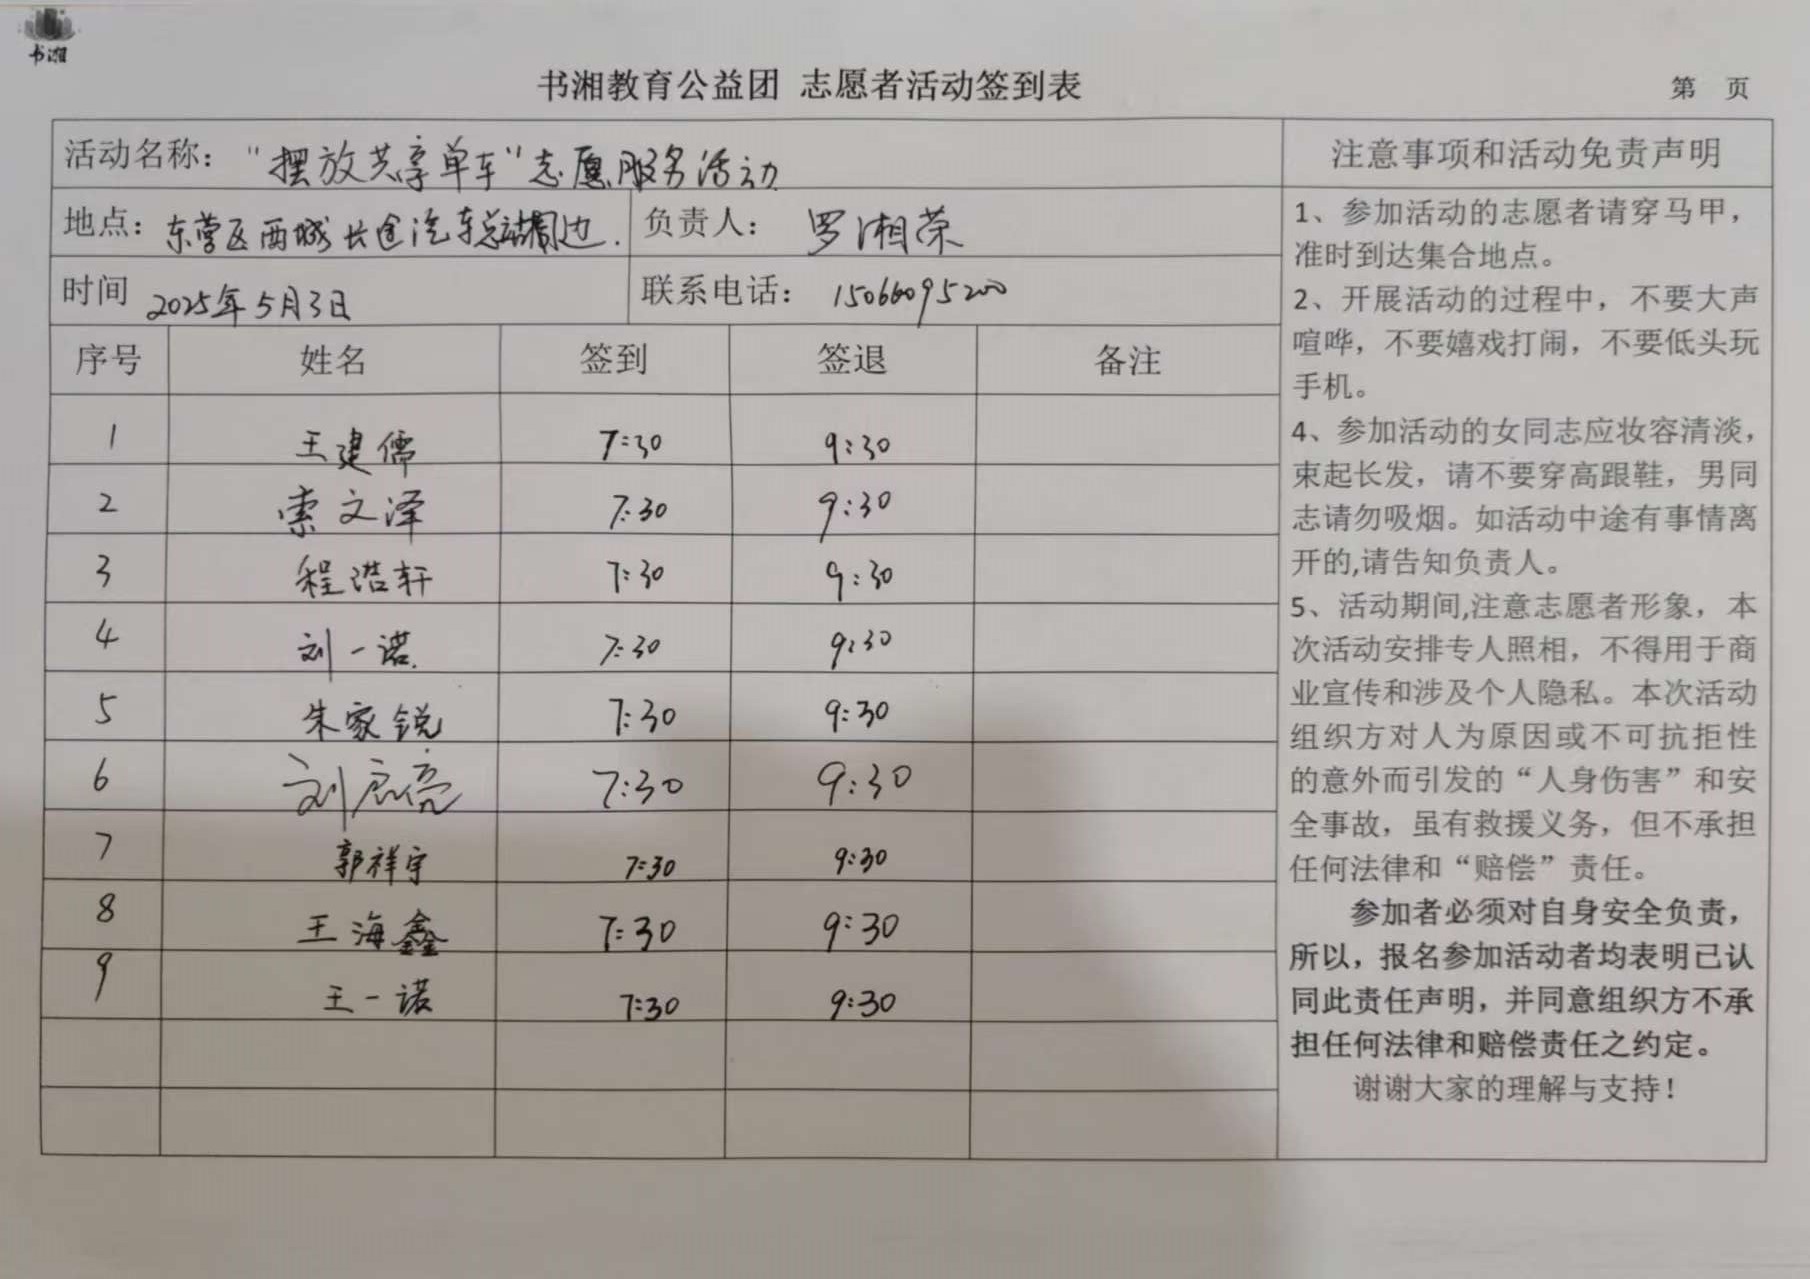 书湘
书湘教育公益团 志愿者活动签到表
第 页
活动名称：“摆放共享单车”志愿服务活动
注意事项和活动免责声明
地点：东营区西城长途汽车总站周边. 负责人：罗湘荣
时间 2025年5月3日 联系电话：15066095200
序号 姓名 签到 签退 备注
1 王建儒 7:30 9:30
2 索文泽 7:30 9:30
3 程浩轩 7:30 9:30
4 刘一诺. 7:30 9:30
5 朱家锐 7:30 9:30
6 刘 亮 7:30 9:30
7 郭祥宇 7:30 9:30
8 王海鑫 7:30 9:30
9 王一诺 7:30 9:30
1、参加活动的志愿者请穿马甲，
准时到达集合地点。
2、开展活动的过程中，不要大声
喧哗，不要嬉戏打闹，不要低头玩
手机。
4、参加活动的女同志应妆容清淡，
束起长发，请不要穿高跟鞋，男同
志请勿吸烟。如活动中途有事情离
开的,请告知负责人。
5、活动期间,注意志愿者形象，本
次活动安排专人照相，不得用于商
业宣传和涉及个人隐私。本次活动
组织方对人为原因或不可抗拒性
的意外而引发的“人身伤害”和安
全事故，虽有救援义务，但不承担
任何法律和“赔偿”责任。
参加者必须对自身安全负责，
所以，报名参加活动者均表明已认
同此责任声明，并同意组织方不承
担任何法律和赔偿责任之约定。
谢谢大家的理解与支持！